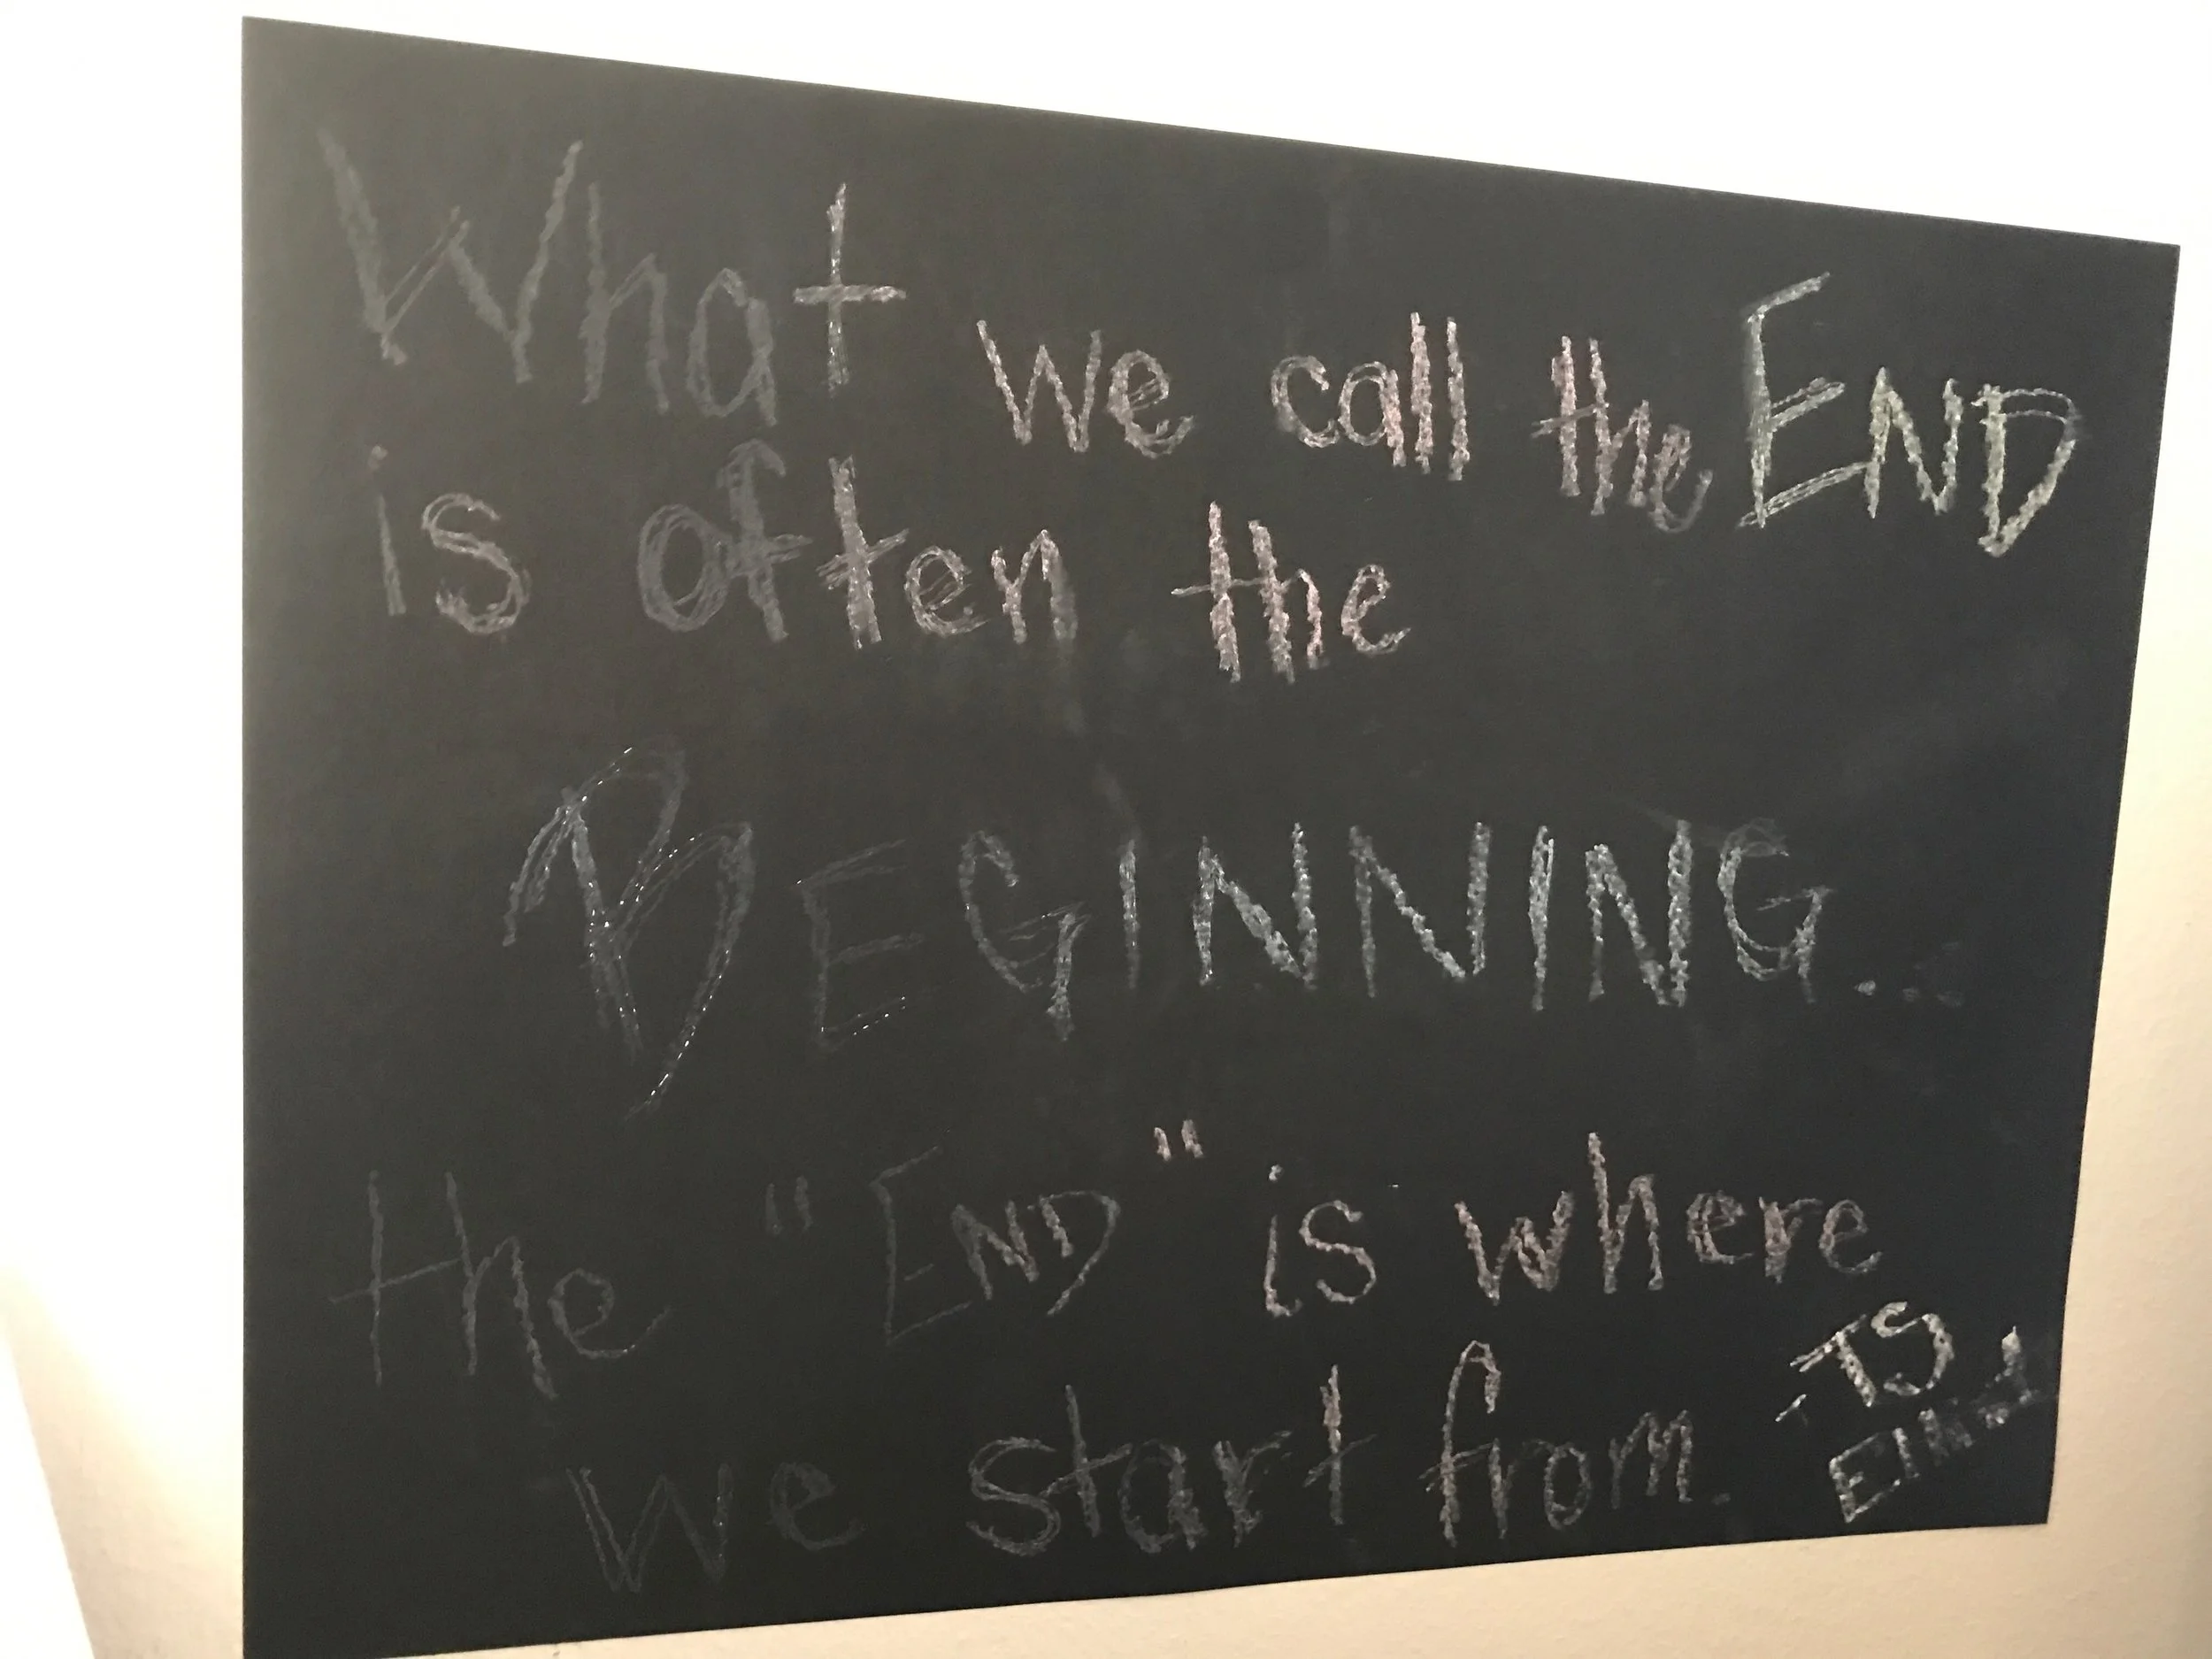 What we call the END
is often the
BEGINNING...
the "END" is where
we start from.
-TS